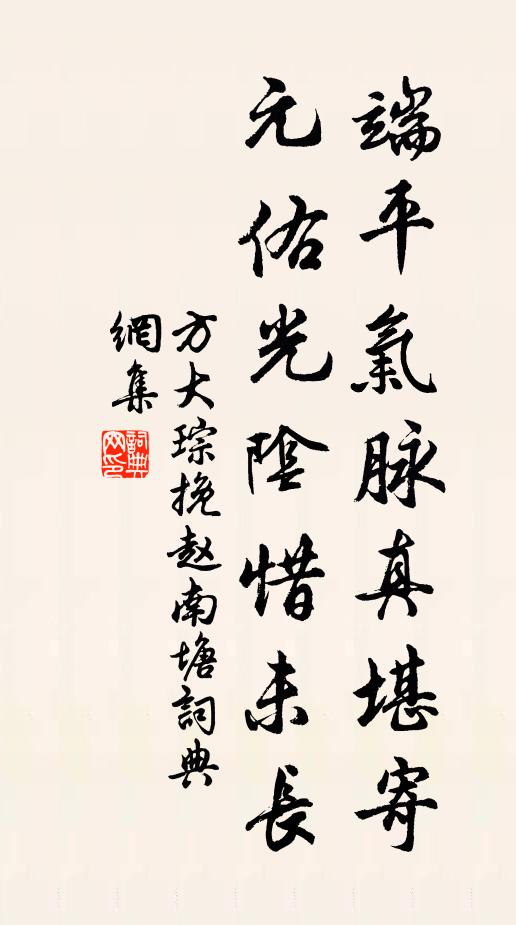 端平氣脉真堪寄
元佑光陰惜未長
方大琮挽赵南塘詞典
網集
詞典网印